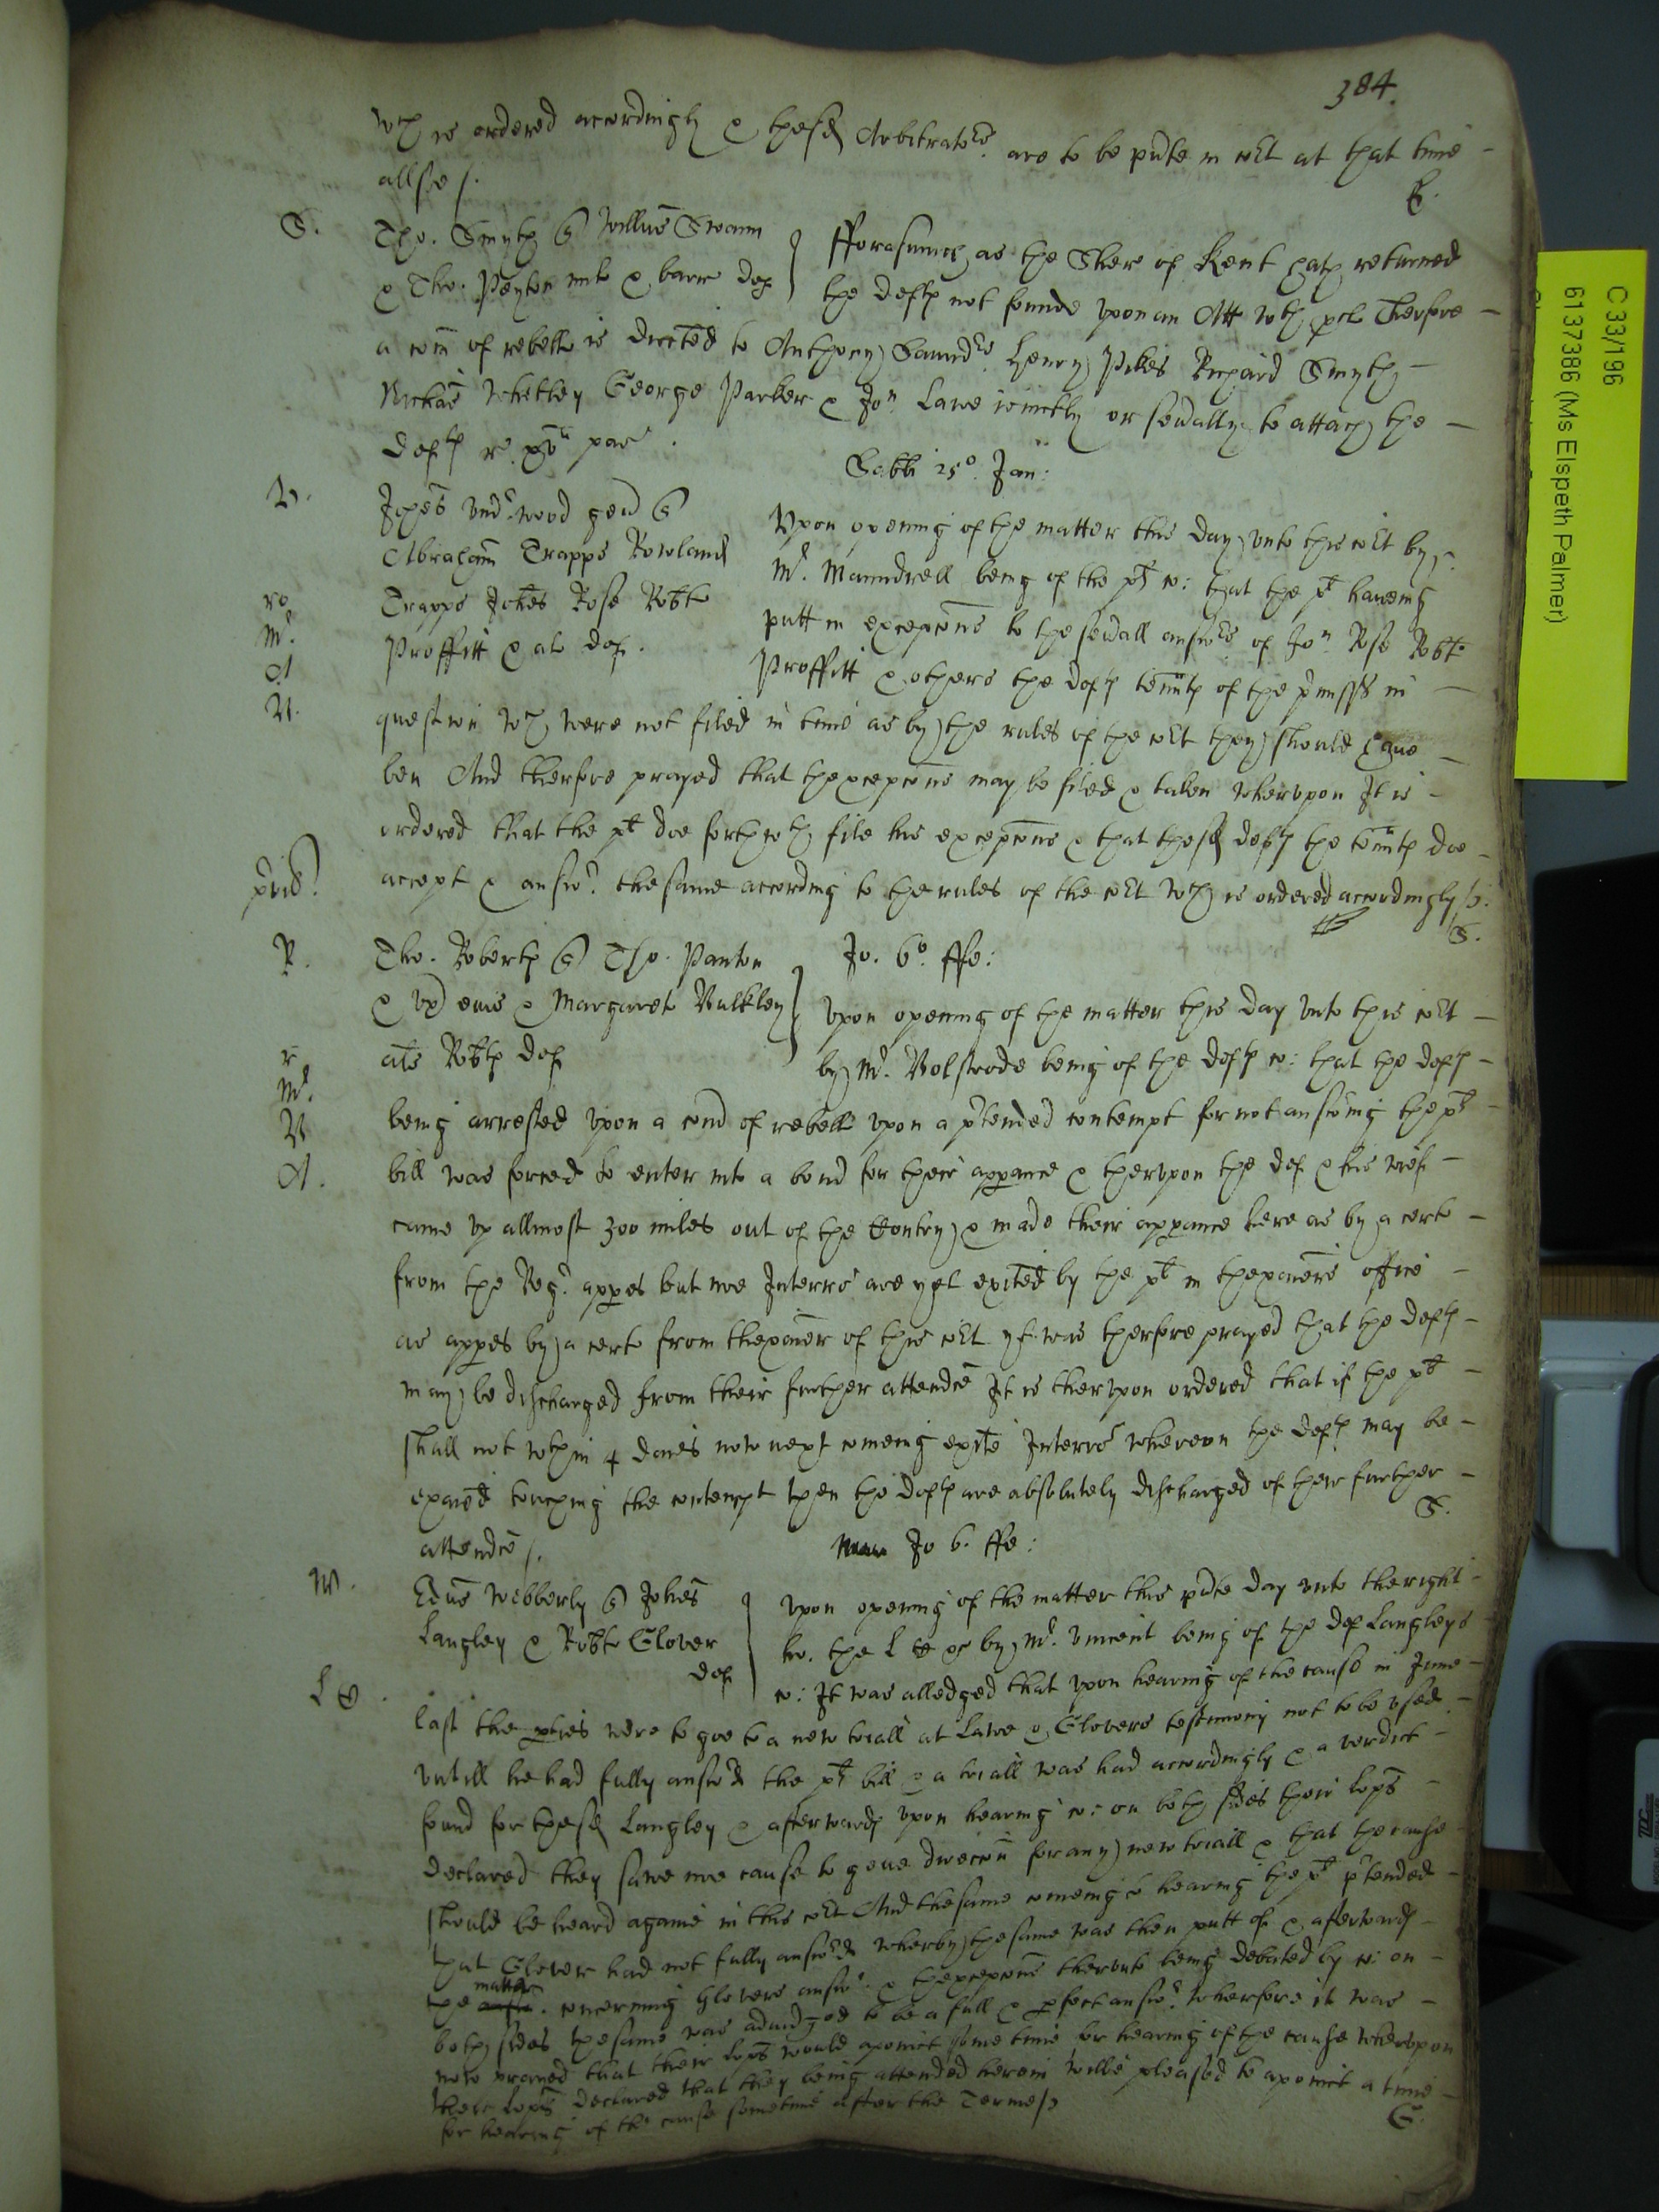 384.
wch is ordered accordingly & thesd Arbitrators are to be pnte in cot at that time
allsoe /.
E.
S.
Tho. Smyth q Willus Swann
& Tho. Peyton mil & barr def
fforasmuch as the Sher of Kent hath returned
the deftes not founde vpon an Att wth pcl Therfore
a com of rebell is dirited to Anthony Saunders Henry Pikes Richard Smyth
Nichas Whetley George Parker & Jon Lane ioinctly or seually to attach the
deftes
Sabbi 25o Jan:
V.
Johes Vnderwood gen q
Abraham Trapps Rowland
Trapps Johes Rose Robte
Proffitt & als def.
ro
Mr
A
N.
Vpon opening of the matter this day vnto this cot by
Mr. Maundrell being of the pts co: that the pt haueing
putt in excepcons to the seuall answers of Jon Rose Robte
Proffitt & others the deftes tennts of the pmisss in
question wch were not filed in time as by the rules of the cot they should haue
ben And therfore prayed that thexcepcons may be filed & taken whervpon It is
ordered that the pt doe forthwth file his excepcons & that thesd deftes the tennts doe
accept & answr the same according to the rules of the cot wch is ordered accordingly /.
S.
R.
Tho. Roberts q Tho. Panton
& vx eius & Margareta Bulkley
als Robts def
Jo. 6o ffe:
r
Mr.
N
A.
Vpon opening of the matter this day vnto this cot
by Mr. Bolstrode being of the deftes co: that the deftes
being arrested vpon a comd of rebell vpon a ptended contempt for not answring the pts
bill was forced to enter into a bond for their apparance & thervpon the def & his wief
came vp allmost 300 miles out of the Contry & made their apparance here as by a certe
from the Regr appes but noe Interro are yet exited by the pt in thexaiers office
as appes by a certe from thexaier of this cot yt was therfore prayed that the deftes
may be discharged from their further attendce It is thervpon ordered that if the pt
shall not wthin 4 daies now next comeing exite Interro whereon the deftes may be
exaied touching the contempt then the deftes are absolutely discharged of their further
attendce /.
S.
Jo 6. ffe:
W.
Edus Webberly q Johes
Langley & Robte Glover
def
L C.
Vpon opening of the matter this pnte day vnto the right
ho. the L C &c by Mr. Vincent being of the def Langleys
co: It was alledged that vpon hearing of the cause in June
last the pties were to goe to a new triall at Lawe & Glovers testimony not to be vsed
vntill he had fully answrd the pts bill & a triall was had accordingly & a verdict
found for thesd Langley & afterwards vpon hearing co: on both sides their lopps
declared they sawe noe cause to geue direccon for any new triall & that the cause
should be heard againe in this cot And the same comeing to hearing the pt ptended
that Glover had not fully answrd wherby the same was then putt of & afterwards
the matter concerning Glovers answr. & thexcepcons thervnto being debated by co: on
both sides the same was adiudged to be a full & pfect answr. Wherfore it was
now prayed that their lopps would apoinct some time for hearing of the cause whervpon
their lopps declared that they being attended herein wilbe pleased to apoinct a time
for hearing of the cause sometime after the Terme /.
G.
C 33/196
6137386 (Ms Elspeth Palmer)